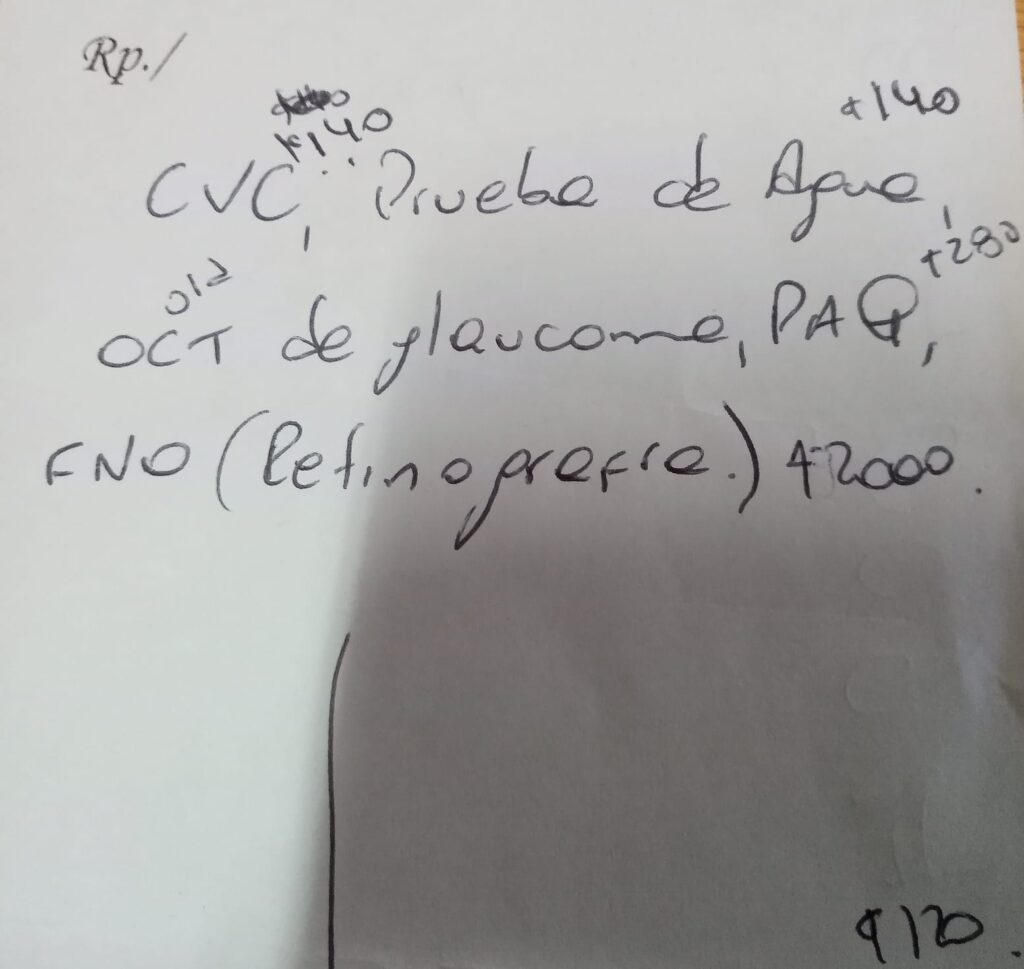 Rp./
+140 +140
CVC, Prueba de Agua,
012 +280
OCT de glaucoma, PAQ,
FNO (Retinografía.) +2000.
$120.